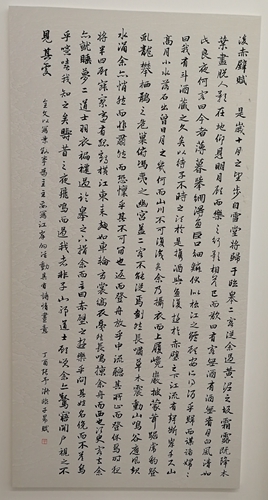 後赤壁賦 是歲十月之望步自雪堂將歸于臨皋二客從余過黃泥之坂霜露既降木
葉盡脫人影在地仰見明月顧而樂之行歌相答已而歎曰有客無酒有酒無肴月白風清如
此良夜何客曰今者薄暮舉網得魚巨口細鱗狀似松江之鱸顧安所得酒乎歸而謀諸婦婦
曰我有斗酒藏之久矣以待子不時之須於是攜酒與魚復遊於赤壁之下江流有聲斷岸千尺山
高月小水落石出曾日月之幾何而江山不可復識矣余乃攝衣而上履巉巖披蒙茸踞虎豹登
虬龍攀栖鶻之危巢俯馮夷之幽宮蓋二客不能從焉劃然長嘯草木震動山鳴谷應風起
水涌余亦悄然而悲肅然而恐凜乎其不可留也返而登舟放乎中流聽其所止而休焉時夜
將半四顧寂寥適有孤鶴橫江東來翅如車輪玄裳縞衣戛然長鳴掠余舟而西也須臾客去余
亦就睡夢二道士羽衣蹁躚過臨皋之下揖余而言曰赤壁之遊樂乎問其姓名俛而不答嗚
呼噫嘻我知之矣疇昔之夜飛鳴而過我者非子也耶道士顧笑余亦驚寤開戶視之不
見其處